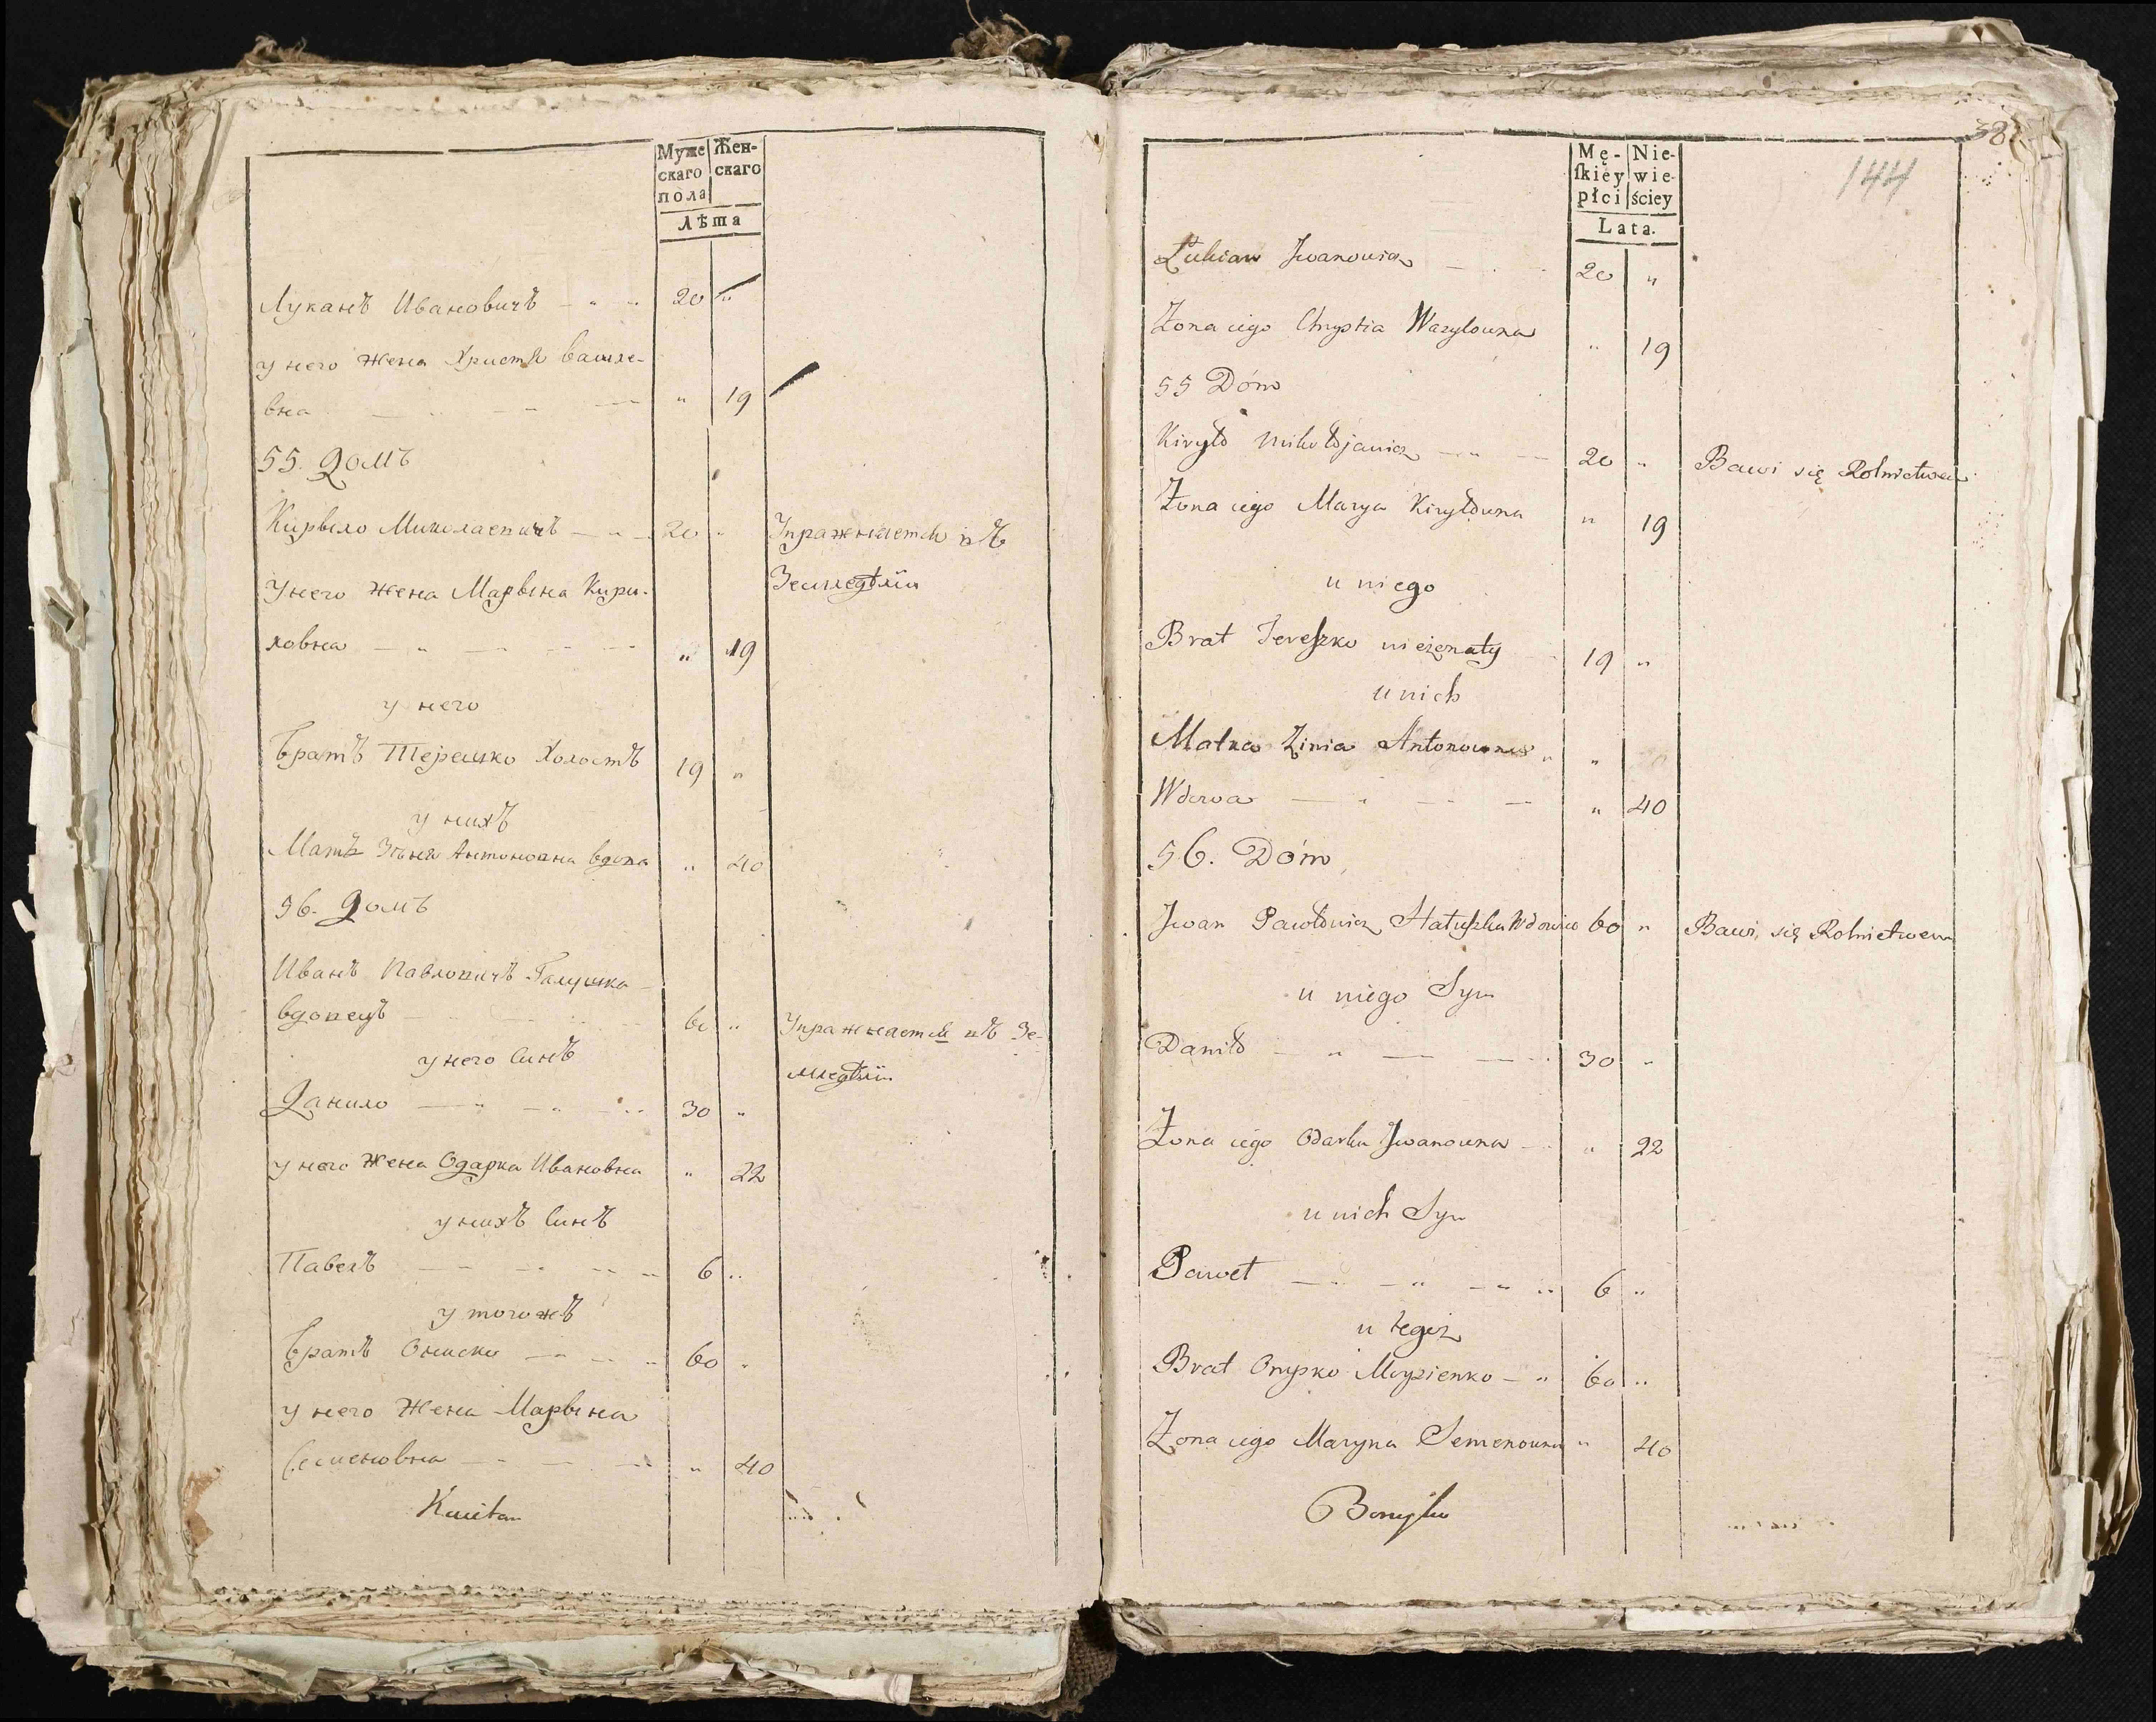 Муже
скаго
пола
Жен-
скаго
Лѣта
Луканъ Ивановичъ — " — 20 "
у него жена Христя Василе-
вна — " — " — " 19
55. Домъ
Кирыло Миколаевичъ — " — 20 "
Упражняется въ
Земледѣліи
У него жена Марына Кири-
ловна — " — " 19
у него
Братъ Терешко холостъ 19 "
у нихъ
Мать Зѣня Антоновна вдова " 40
56. Домъ
Иванъ Павловичъ Галушка
вдовецъ 60 "
Упражняется въ Зе-
мледѣліи
у него Синъ
Данило — " — " — 30 "
у него жена Одарка Ивановна " 22
у нихъ Синъ
Павелъ — " — " 6 "
у тогожъ
Братъ Ониско — " 60 "
у него жена Марына
Семеновна — " 40
Kwita
38
144
Mę-
ſkiéy
płci
Nie-
wie-
ściey
Lata.
Łukian Iwanowicz — 20 "
Żona iego Chrystia Wazylowna " 19
55 Dóm
Kiryło Mikołojewicz — 20 "
Bawi się Rolnictwem
Żona iego Marya Kiryłowna " 19
u niego
Brat Tereszko nieżonaty 19 "
u nich
Matka Zinia Antonowna "
Wdowa — " — " 40
56. Dóm
Iwan Pawłowicz Hałuszka Wdowiec 60 "
Bawi się Rolnictwem
u niego Syn
Daniło — " — 30 "
Żona iego Odarka Iwanowna — " 22
u nich Syn
Paweł — " — " 6 "
u tegoż
Brat Onysko Moyzienko — " 60 "
Żona iego Maryna Semenowna " 40